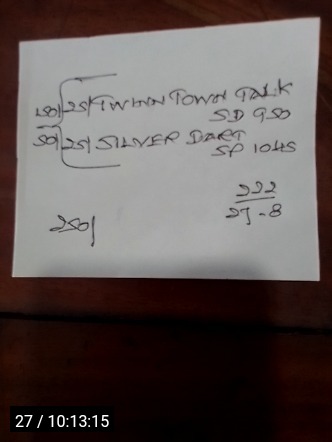 150 25 GWINN TOWN TALK
SD 950
50 25 SILVER DART
SP 1045
222
27-8
250/
27 / 10:13:15